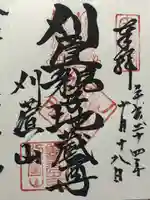 奉拝
平成二十四年
十月十八日
刈萱親子地蔵尊
刈萱山